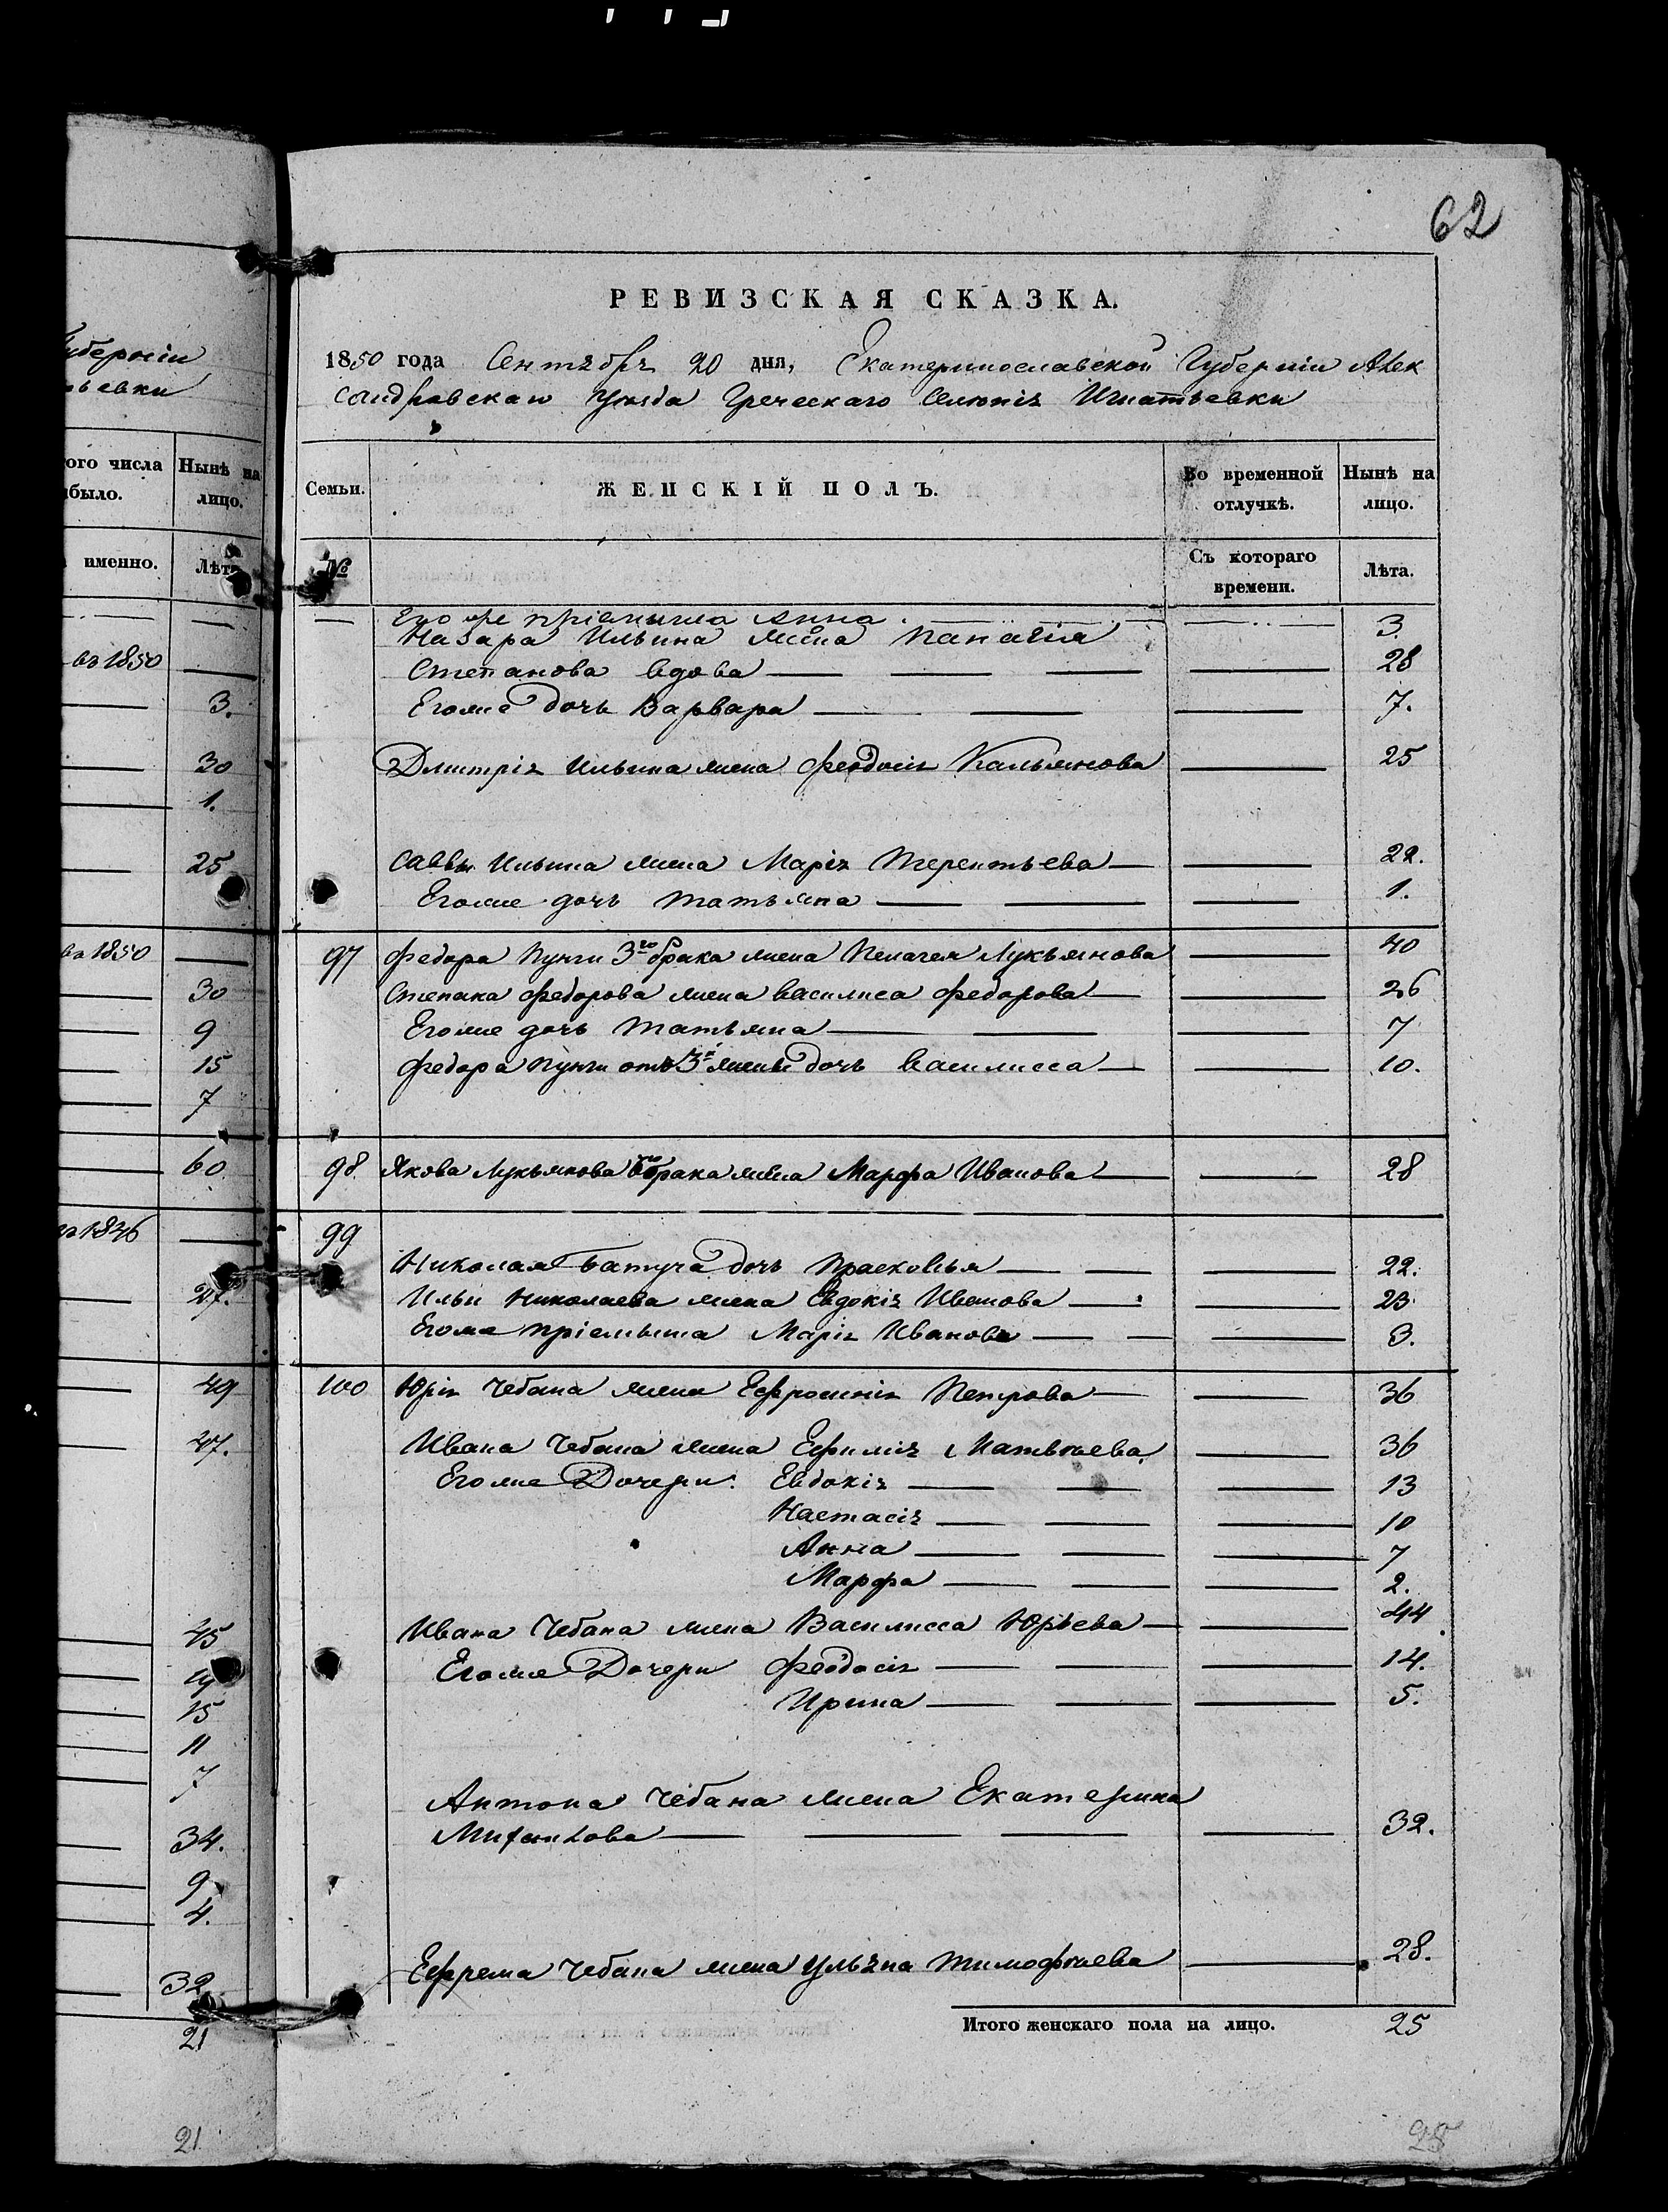 62
РЕВИЗСКАЯ СКАЗКА.
1850 года Сентября 20 дня, Екатеринославской Губернии Алек
сандровскаго Уѣзда Греческаго Селенія Игнатьевки
Губерніи
ьевки
ого числа
было.
Нынѣ на
лицо.
именно.
Лѣта
въ 1850
3.
30
1.
25
въ 1850
30
9
15
7
60
1846
27.
49
27.
45
19
15
11
7
34.
9
4.
32
21
21
Семьи.
ЖЕНСКІЙ ПОЛЪ.
Во временной
отлучкѣ.
Нынѣ на
лицо.
№
Съ котораго
времени.
Лѣта.
Его же пріемыша Анна 3.
Назара Ильина жена Панагія
Степанова вдова 28
Егоже дочь Варвара 7.
Дмитрія Ильина жена Феодосія Касьянова 25
Саввы Ильина жена Марія Терентьева 22.
Егоже дочь Татьяна 1.
97 Федора Пунги 3го брака жена Пелагея Лукьянова 40
Степана Федорова жена Василиса Федорова 26
Егоже дочь Татьяна 7
Федора Пунги отъ 3й жены дочь Василисса 10.
98. Якова Лукьянова брака жена Марфа Иванова 28
99
Николая Батуча дочь Прасковья 22.
Ильи Николаева жена Евдокія Иванова 23.
Егоже пріемыша Марія Иванова 3.
100 Юрія Чебана жена Ефросинія Петрова 36
Ивана Чебана жена Ефимія Матвѣева. 36
Егоже Дочери: Евдокія 13
Настасія 10
Анна 7
Марфа 2.
Ивана Чебана жена Василисса Юрьева 44
Егоже Дочери Феодосія 14.
Ирина 5.
Антона Чебана жена Екатерина
Михайлова 32.
Ефрема Чебана жена Ульяна Тимофѣева 28.
Итого женскаго пола на лицо. 25
25